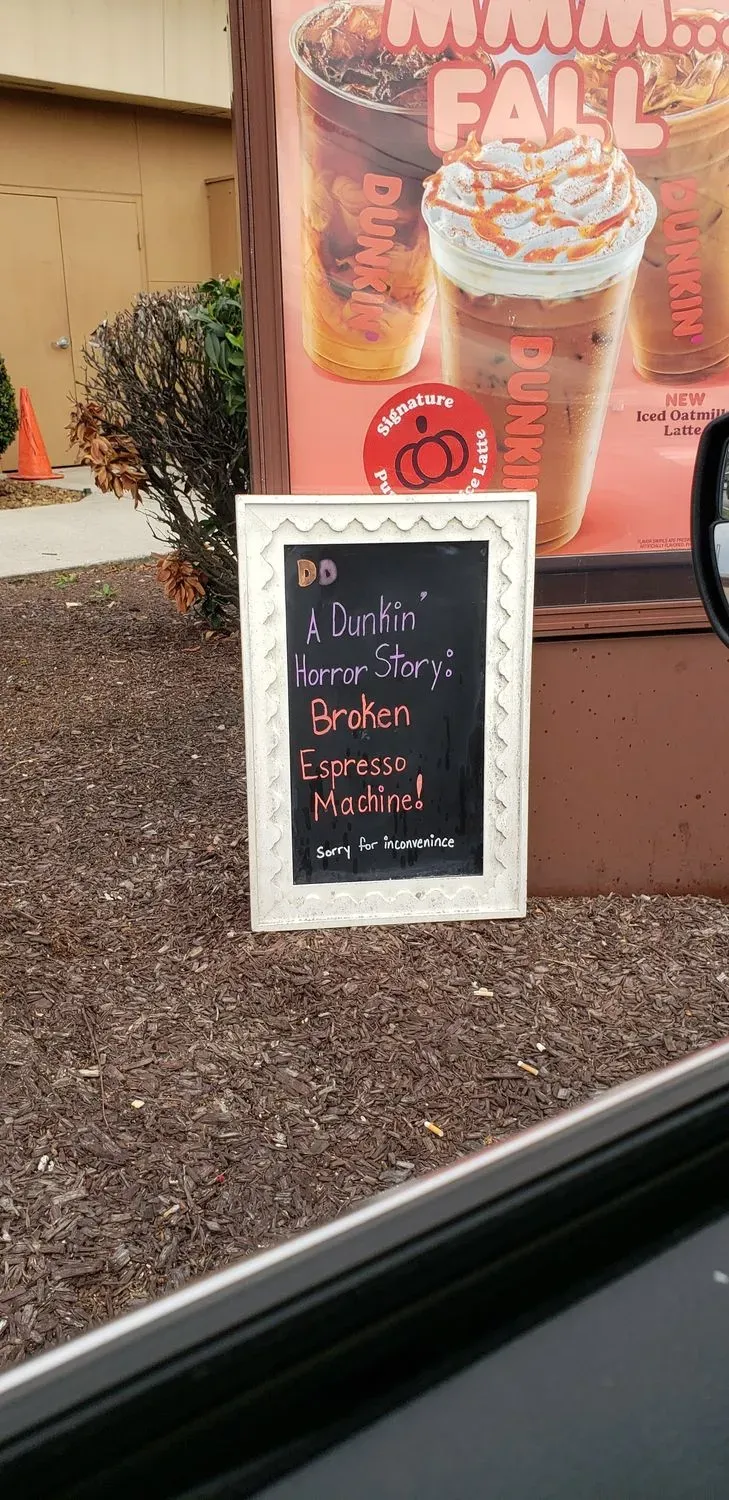 MMM...
FALL
DUNKIN'
DUNKIN'
DUNKIN'
Signature
ce Latte
NEW
Iced Oatmilk
Latte
DD
A Dunkin'
Horror Story:
Broken
Espresso
Machine!
Sorry for inconvenince